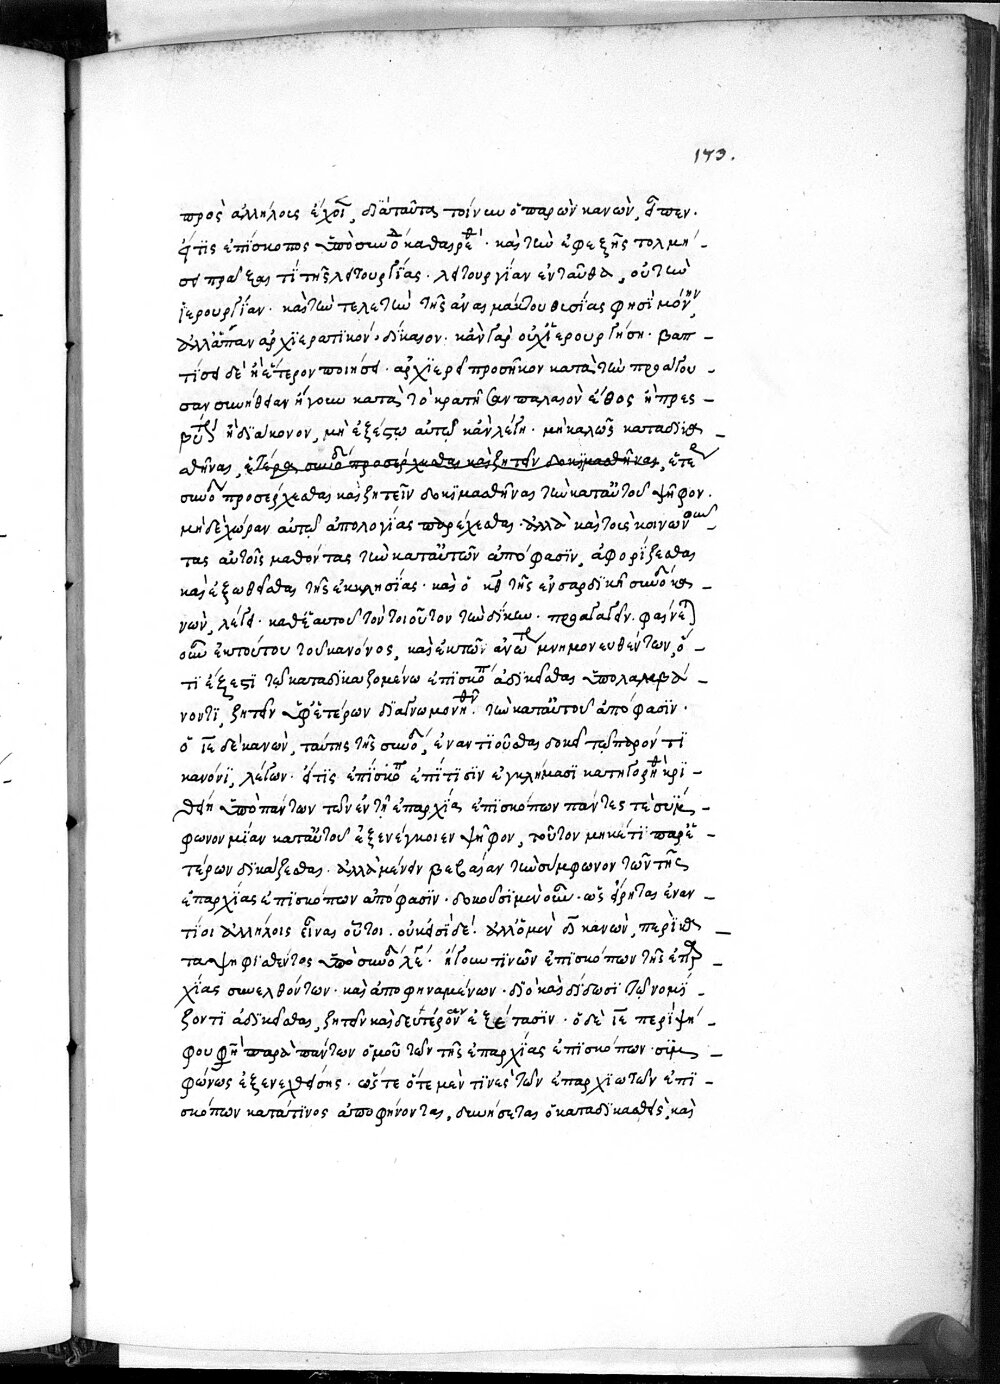 173.
πρὸς ἀλλήλους ἔχοι, διὰ ταῦτα τοίνυν ὁ παρὼν κανὼν, εἶπεν.
εἴ τις ἐπίσκοπος ὑπὸ συνόδ καθαιρεθ. καὶ τῶν ἐφεξῆς τολμή –
σει πράξας τί τῆς λειτουργίας. λειτουργίαν ἐνταῦθα, οὐ τὴν
ἱερουργίαν. καὶ τὴν τελετὴν τῆς ἀναιμάκτου θυσίας φησὶ μόνην,
ἀλλ' ἅπαν ἀρχιερατικὸν δίκαιον. κἂν γὰρ οὐχ ἱερουργήσῃ. βαπ –
τίσει δὲ ἢ ἕτερον ποιήσει. ἀρχιερεῖ προσῆκον κατὰ τὴν προάγου –
σαν συνήθειαν ἤγουν κατὰ τὸ κρατῆσαν παλαιὸν ἔθος ἢ πρεσ –
βύτ ἢ διάκονον, μὴ ἐξέστω αὐτῷ κἂν λέγῃ. μὴ καλῶς καταδικα
σθῆναι, ἑτέρα συνόδ προσέρχεσθαι καὶ ζητεῖν δοκιμασθῆναι, ἑτέ
συνόδ προσέρχεσθαι καὶ ζητεῖν δοκιμασθῆναι τὴν κατ' αὐτοῦ ψῆφον.
μὴ δὲ χώραν αὐτῷ ἀπολογίας παρέχεσθαι. ἀλλὰ καὶ τοὺς κοινωνοῦν
τας αὐτοῖς μαθόντας τὴν κατ' αὐτῶν ἀπόφασιν, ἀφορίζεσθαι
καὶ ἐξωθεῖσθαι τῆς ἐκκλησίας. καὶ ὁ τῆς ἐν σαρδικῇ συνόδ κα –
νὼν, λέγει. καθ' ἑαυτοῦ τὸν τοιοῦτον τὴν δίκην. προάγαγεῖν. φαίνε
οὖν ἐκ τούτου τοῦ κανόνος, καὶ ἐκ τῶν ἀνωτ μνημονευθέντων, ὅ –
τι ἔξεστι τῷ καταδικαζομένῳ ἐπισκόπ ἀδικεῖσθαι ὑπολαμβά –
νοντι, ζητεῖν ὑφ' ἑτέρων διαγνωμονηθῆν τὴν κατ' αὐτοῦ ἀπόφασιν.
ὁ ιε δὲ κανὼν, ταύτης τῆς συνόδ, ἐναντιοῦσθαι δοκεῖ τῷ παρόντι
κανόνι, λέγων. εἴ τις ἐπίσκοπ ἐπί τισιν ἐγκλήμασι κατηγορηθ κρι –
θείη ὑπὸ πάντων τῶν ἐν τῇ ἐπαρχίᾳ ἐπισκόπων πάντες τὲ σύμ –
φωνον μίαν κατ' αὐτοῦ ἐξενέγκοιεν ψῆφον, τοῦτον μηκέτι παρ' ἑ –
τέρων δικάζεσθαι. ἀλλὰ μένειν βεβαίαν τὴν σύμφωνον τῶν τῆς
ἐπαρχίας ἐπισκόπων ἀπόφασιν. δοκοῦσι μὲν οὖν. ὡς εἴρηται ἐναν –
τίοι ἀλλήλοις εἶναι οὗτοι. οὐκ εἰσὶ δέ. ἀλλ' ὁ μὲν δ κανὼν, περὶ κα –
ταψηφισθέντος ὑπὸ συνόδ λέγ. ἤγουν τινῶν ἐπισκόπων τῆς ἐπαρ –
χίας συνελθόντων. καὶ ἀποφηναμένων. διὸ καὶ δίδωσι τῷ νομί –
ζοντι ἀδικεῖσθαι, ζητεῖν καὶ δευτέραν ἐξέτασιν. ὁ δὲ ιε περὶ ψή –
φου φησὶ παρὰ πάντων ὁμοῦ τῶν τῆς ἐπαρχίας ἐπισκόπων. συμ –
φώνως ἐξενεχθείσης. ὥστε ὅτε μὲν τινὲς τῶν ἐπαρχιωτῶν ἐπι –
σκόπων κατά τινος ἀποφήνονται, δυνήσεται ὁ καταδικασθεὶς, καὶ